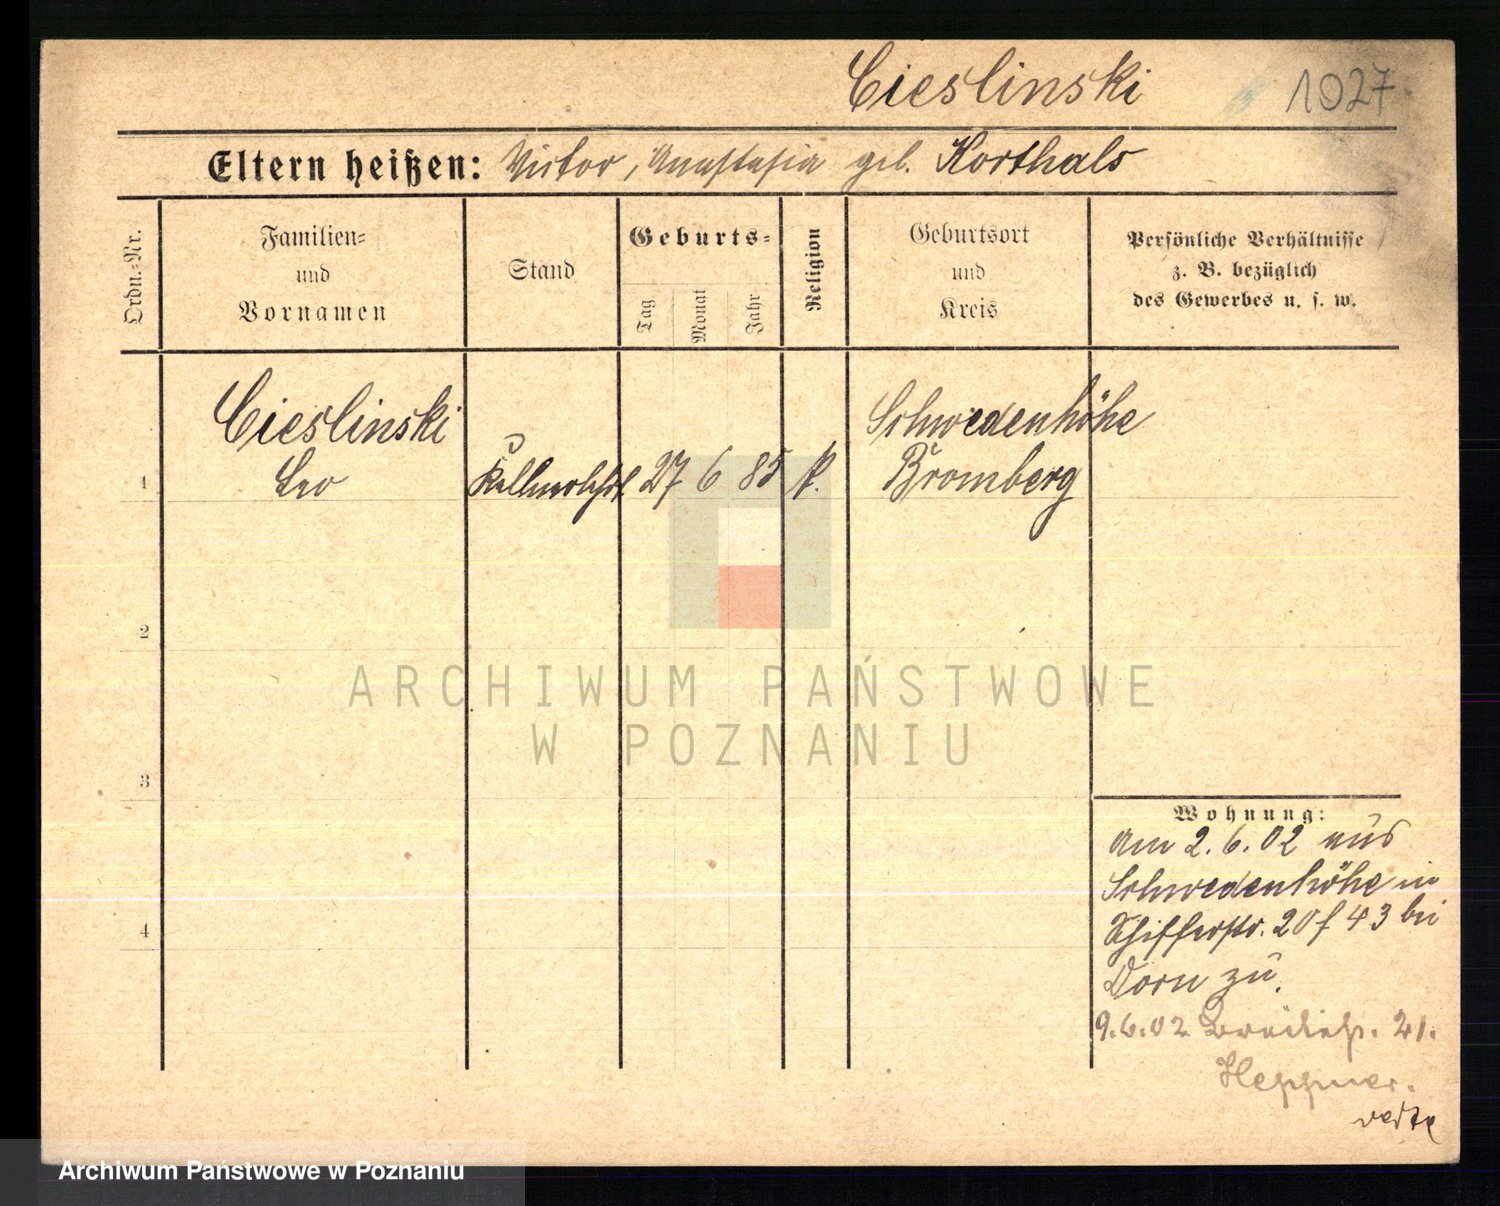 Cieslinski 1027
Eltern heißen: Victor, Anastasia geb. Korthals
Ordn.-Nr.
Familien-
und
Vornamen
Stand
Geburts-
Tag
Monat
Jahr
Religion
Geburtsort
und
Kreis
Persönliche Verhältnisse
z. B. bezüglich
des Gewerbes u. s. w.
Cieslinski Schwedenhöhe
1 Leo Kellnerlehrl. 27 6 85 k. Bromberg
2
ARCHIWUM PAŃSTWOWE
W POZNANIU
3
Wohnung:
Am 2.6.02 aus
Schwedenhöhe in
Schifferstr. 20 f 43 bei
4
Dorn zu.
9.6.02 21.
Heppner.
verte
Archiwum Państwowe w Poznaniu